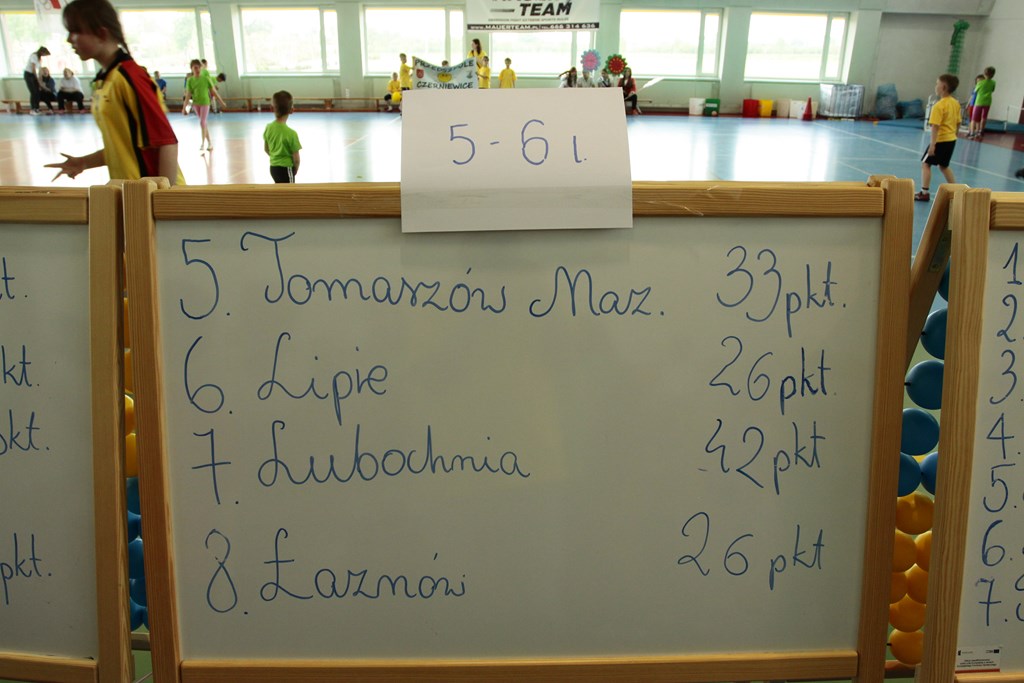 TEAM
PRZEDSZKOLE
CZERNIEWICE
5 - 6 l.
5. Tomaszów Maz. 33 pkt.
6. Lipie 26 pkt
7. Lubochnia 42 pkt
8. Łaznów 26 pkt
t.
kt.
pkt.
pkt.
1.
2.
3.
4.
5.
6.
7.